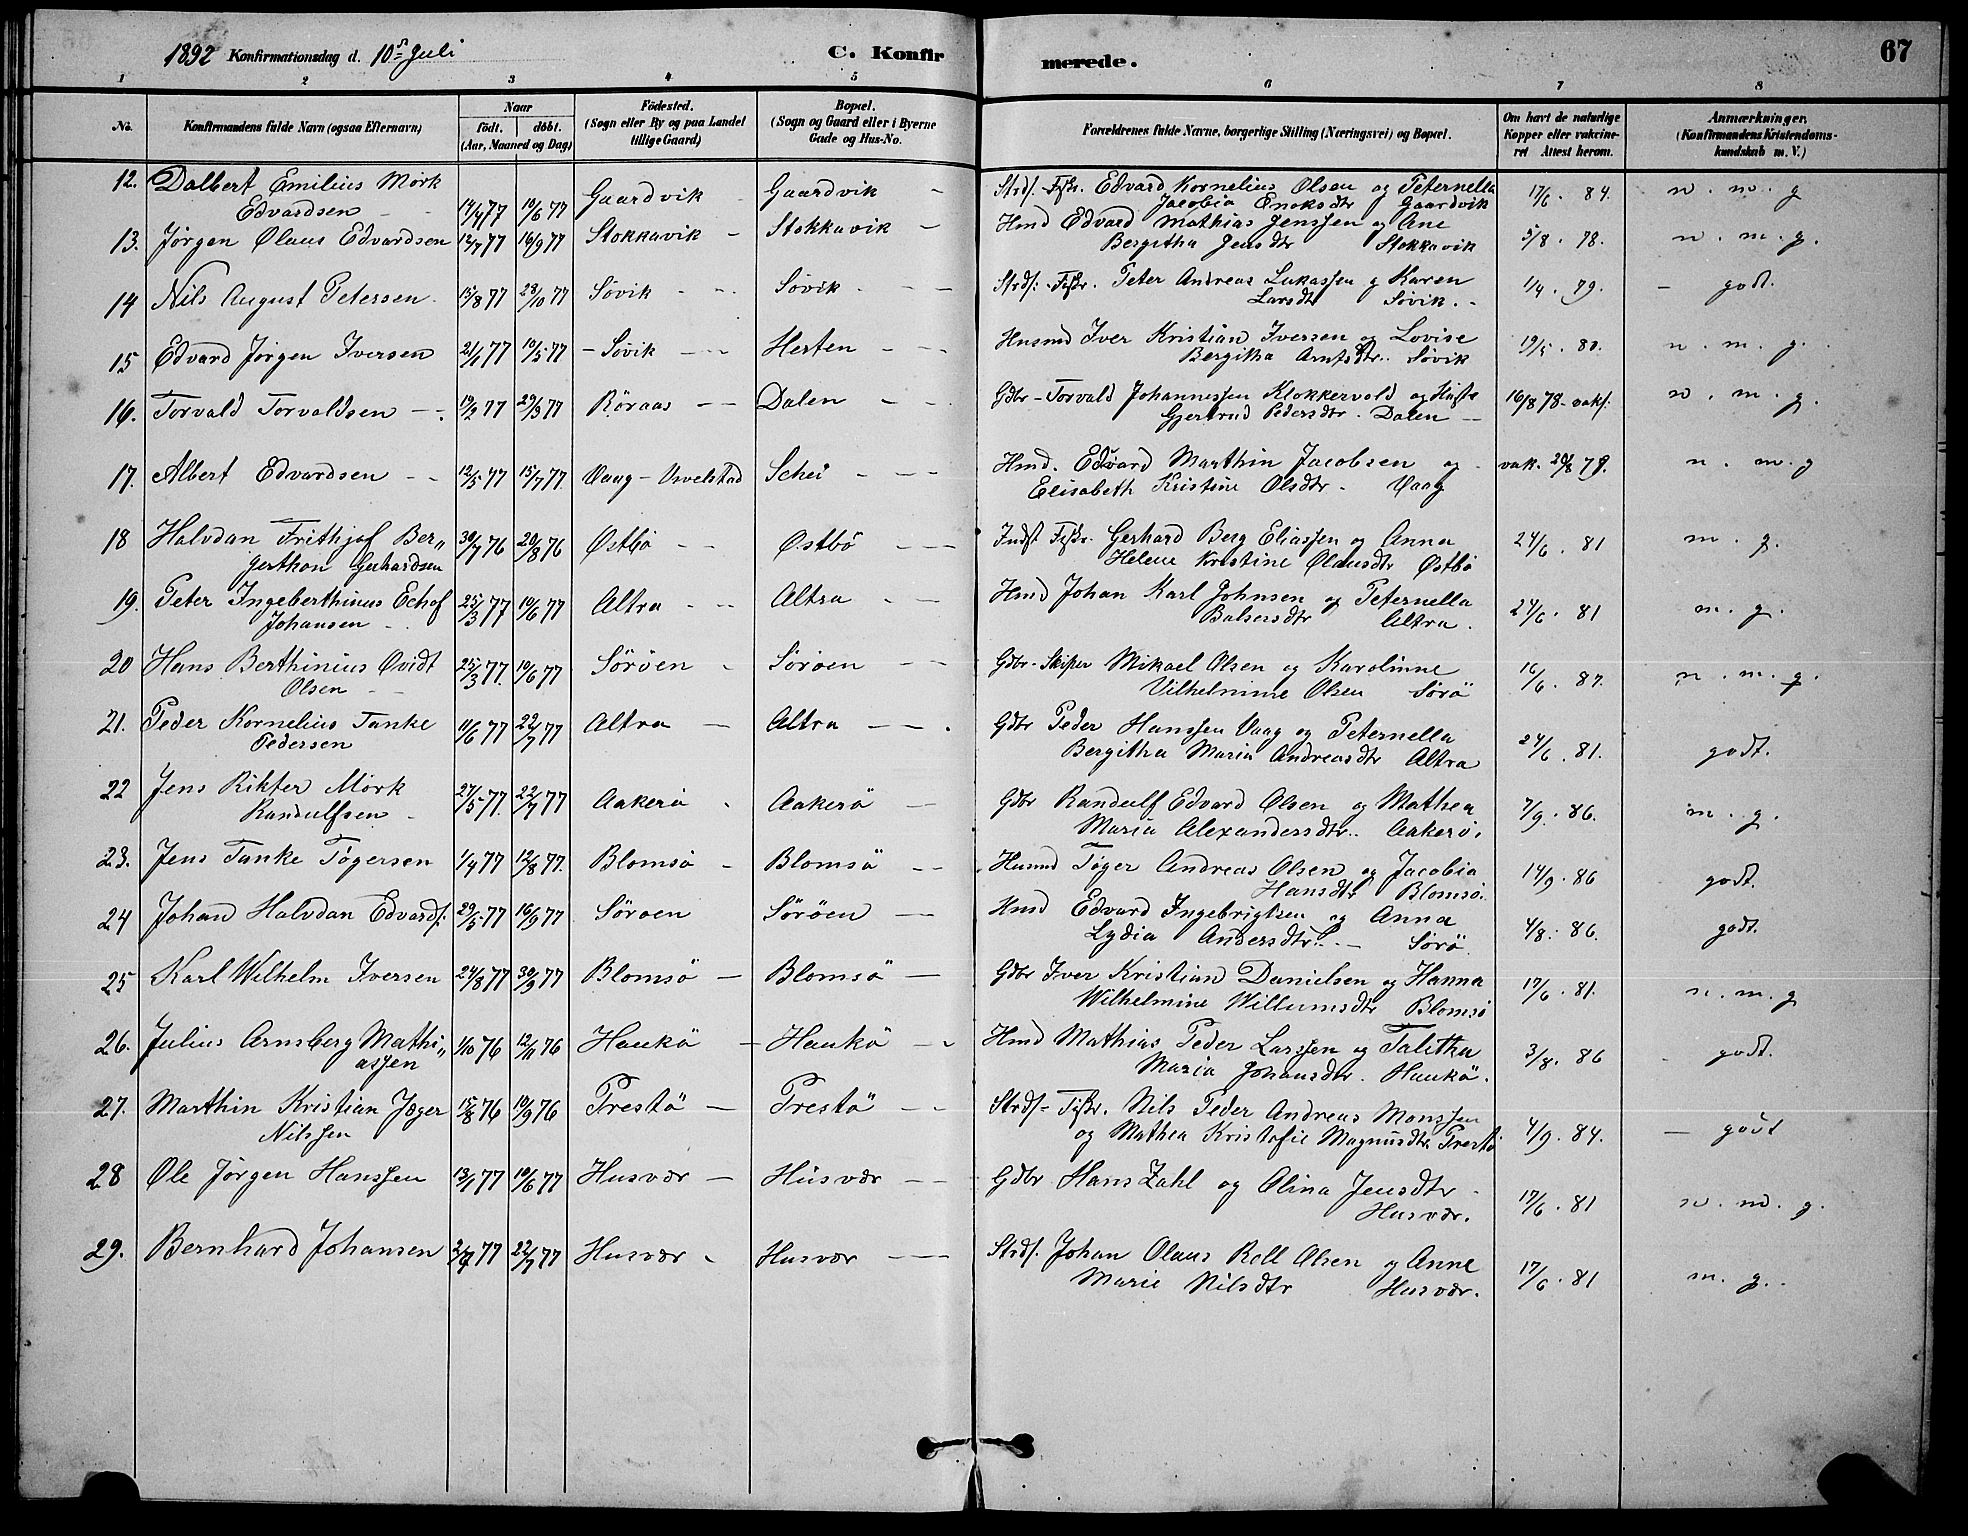 1892 Konfirmationsdag d. 10de Juli
C. Konfirmerede.
67
1 2 3 4 5 6 7 8
No.
Konfirmandens fulde Navn (ogsaa Efternavn)
Naar
födt. döbt.
(Aar, Maaned og Dag)
Födested.
(Sogn eller By og paa Landet
tillige Gaard)
Bopæl.
(Sogn og Gaard eller i Byerne
Gade og Hus-No.
Forældrenes fulde Navne, borgerlige Stilling (Næringsvei) og Bopæl.
Om havt de naturlige
Kopper eller vakcine-
ret Attest herom.
Anmærkninger.
(Konfirmandens Kristendoms-
kundskab m. V.)
12. Dalbert Emilius Mörk 14/4 77 10/6 77 Gaardvik - Gaardvik - Strds.-Fisr. Edvard Kornelius Olsen og Peternella 17/6. 84. n. m. g
Edvardsen Jacobia Enoksdtr Gaardvik
13. Jørgen Olaus Edvardsen 12/7 77 16/9 77 Stokkavik - Stokkavik - Hmd Edvard Mathias Jenssen og Ane 5/8. 78. n. m. g.
Bergitha Jensdtr Stokkavik
14 Nils August Petersen. 15/8 77 28/10 77 Sövik - - Sövik. - - Strds.-Fisr. Peter Andreas Lukassen og Karen 1/4. 79. - godt.
Larsdtr Søvik. -
15 Edvard Jørgen Iversen 21/1 77 10/5 77 - Sövik - - Herten - - Husmd Iver Kristian Iversen og Lovise 19/5. 80. n. m. g.
Bergitha Arntsdtr. Søvik
16. Torvald Torvaldsen - - 19/2 77 29/3 77 Röraas - - Dalen - - Gdbr - Torvald Johannessen Klokkervold og Hustr 16/8 78 - vaks. n. m. g.
Gjertrud Pedersdtr. Dalen -
17. Albert Edvardsen - - 12/5 77 15/7 77. Vaag - Schei - - - Hmd. Edvard Marthin Jacobsen og vak. 20/8 79. n. m. g
Elisabeth Kristine Olsdtr - Vaag
18 Halvdan Frithjof Ber„ 30/7 76 20/8 76 Østbö - - Østbö - - Indst Fisr. Gerhard Berg Eliassen og Anna 24/6. 81 m. g.
gerthon Gerhardsen Helene Kristine Olausdtr Østbö
19. Peter Ingeberthinus Echof 25/3 77 10/6 77 Altra - - Altra - - Hmd Johan Karl Johnsen og Peternella 24/6. 81 m. g.
Johansen - Balsersdtr Altra.
20 Hans Berthinius Ovidt 25/3 77. 10/6 77 Söröen - Söröen - - Gdbr - Skiper Mikael Olsen og Karolinne 16/6. 87. n. m. g.
Olsen - Vilhelmine Olsen Sørö
21. Peder Kornelius Tanke 11/6 77 22/7 77 Altra - Altra - - Gdbr Peder Hanssen Vaag og Peternella 24/6. 81. godt.
Pedersen Bergitha Maria Andreasdtr Altra
22 Jens Rikter Mörk 27/5 77. 22/7 77 Aakerö - Aakerö - Gdbr Randulf Edvard Olsen og Mathea 7/9. 86. m. g.
Randulfsen - Maria Alexandersdtr. Aakerö.
23. Jens Tanke Tøgersen 1/4 77 12/8 77. Blomsö - Blomsö - - Husmd Tøger Andreas Olsen og Jacobia 14/9. 86 godt.
Hansdtr Blomsö.
24 Johan Halvdan Edvards. 29/5 77 16/9 77 Söröen Söröen - Hmd Edvard Ingebrigtsen og Anna 4/8. 86. godt.
Lydia Andersdtr. - Sörö
25 Karl Wilhelm Iversen 24/8 77 30/9 77 Blomsö - Blomsö - Gdbr Iver Kristian Danielsen og Hanna 17/6. 81. n. m. g
Wilhelmine Willumsdtr Blomsö
26. Julius Arnsberg Mathi„ 1/10 76 12/11 76 Haukö - Haukö - Hmd Mathias Peder Larssen og Talitha 3/8. 86 - godt.
assen Maria Johansdtr. Haukö.
27. Marthin Kristian Jæger 15/8 76 10/9 76 Prestö - Prestö - - Strds - Fisr. Nils Peder Andreas Monssen 4/9. 84. - godt
Nilssen og Mathea Kristofie Magnusdtr Prestö
28 Ole Jørgen Hanssen 13/1 77 10/6 77 Husvær - Husvær - - Gdbr Hans Zahl og Olina Jensdtr - 17/6. 81 n. m. g.
Husvær.
29. Bernhard Johansen 2/4 77 22/7 77 Husvær - Husvær - Strds. Johan Olaus Roll Olsen og Anne 17/6. 81 m. g.
Marie Nilsdtr Husvær.